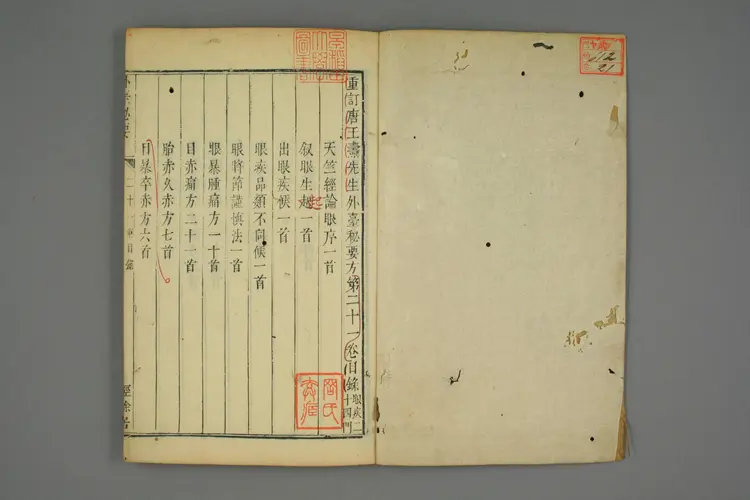 重訂唐王燾先生外臺秘要方第二十一卷目錄 眼疾二十四門
天竺經論眼序一首
叙眼生起一首
出眼疾候一首
眼疾品類不同候一首
眼將節謹慎法一首
眼暴腫痛方一十首
目赤痛方二十一首
胎赤久赤方七首
目暴卒赤方六首
外臺秘要
二十一 目錄
經餘居
112
21